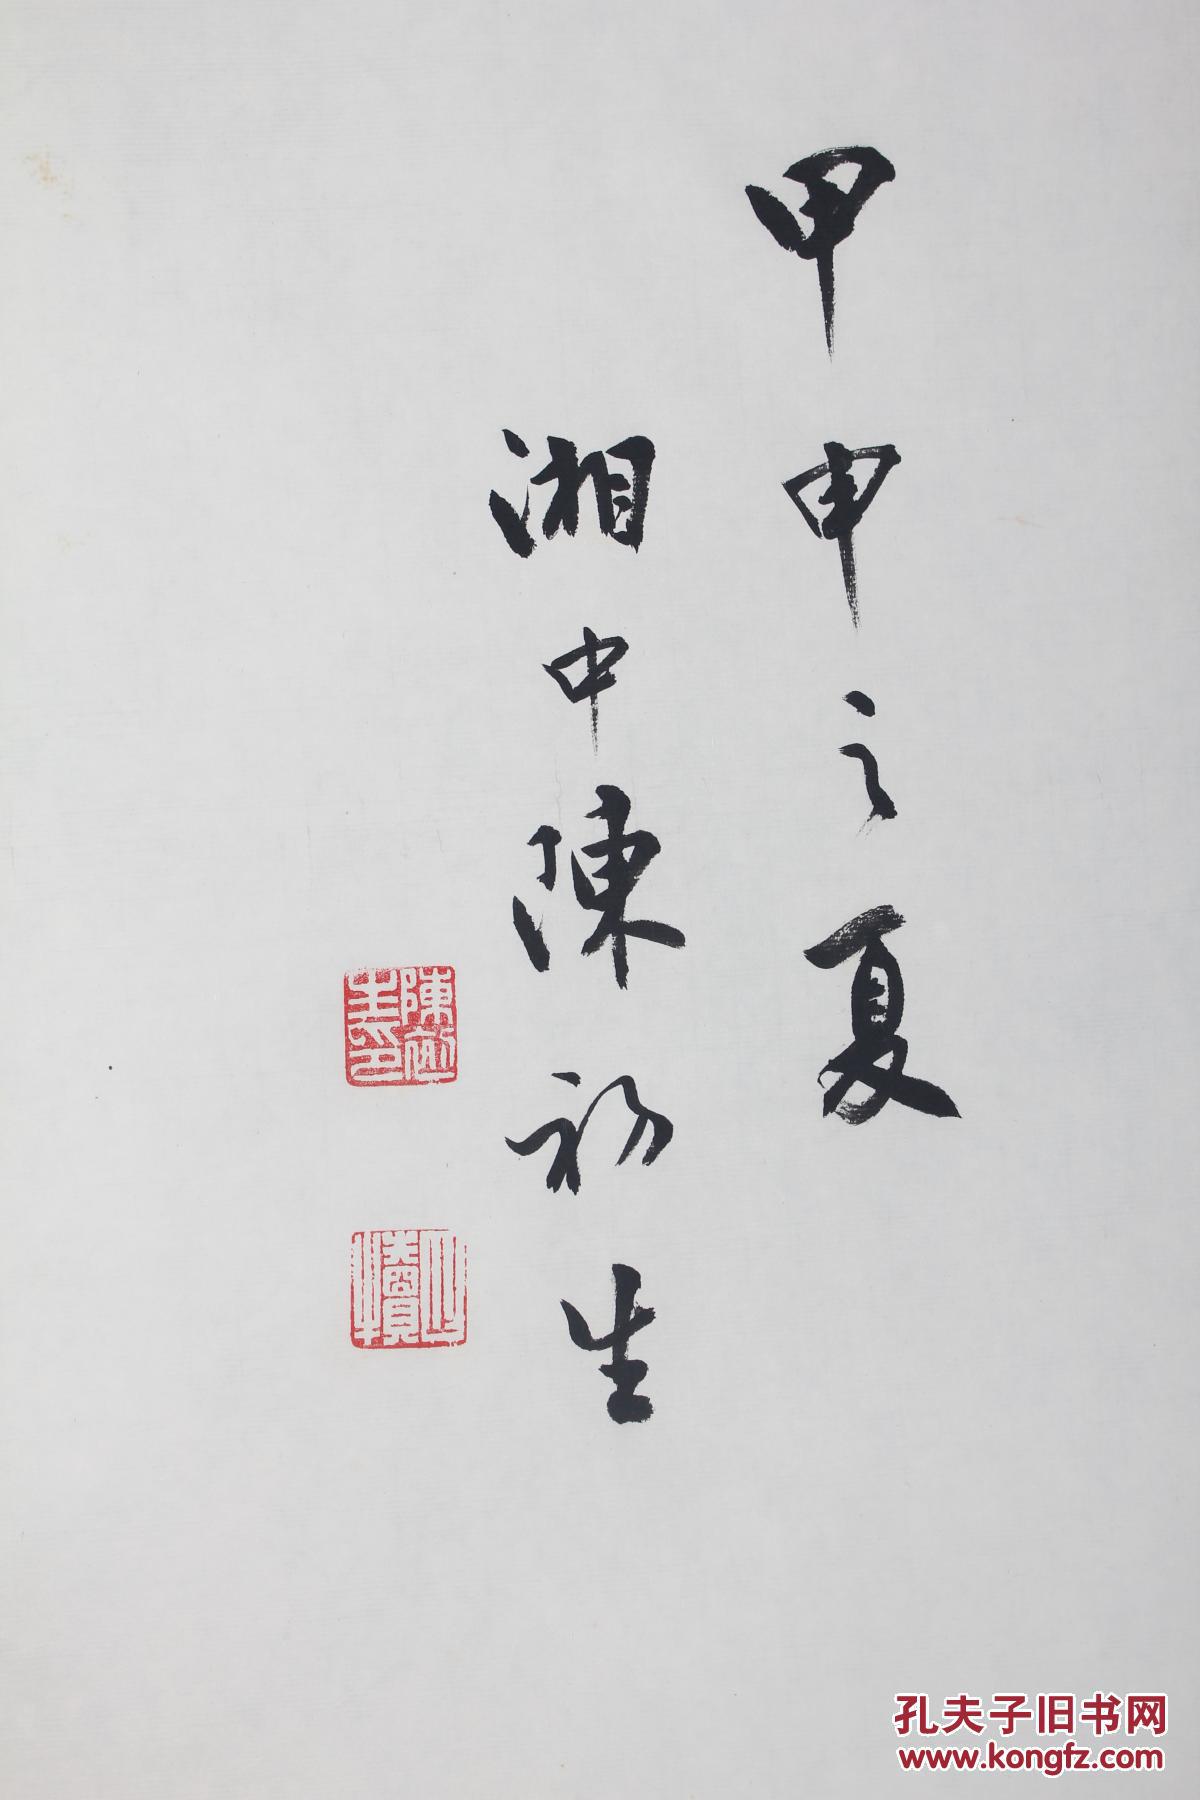 甲申之夏
湘中陳初生
陳初生印
孔夫子旧书网
www.kongfz.com